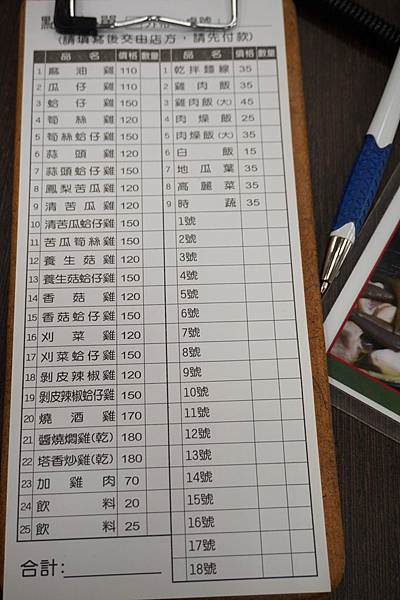 (請填寫後交由店方，請先付款)
品 名 價格 數量
1 麻油雞 110
2 瓜仔雞 110
3 蛤仔雞 150
4 筍絲雞 120
5 筍絲蛤仔雞 150
6 蒜頭雞 120
7 蒜頭蛤仔雞 150
8 鳳梨苦瓜雞 120
9 清苦瓜雞 120
10 清苦瓜蛤仔雞 150
11 苦瓜筍絲雞 150
12 養生菇雞 120
13 養生菇蛤仔雞 150
14 香菇雞 120
15 香菇蛤仔雞 150
16 刈菜雞 120
17 刈菜蛤仔雞 150
18 剝皮辣椒雞 120
19 剝皮辣椒蛤仔雞 150
20 燒酒雞 170
21 醬燒燜雞(乾) 180
22 塔香炒雞(乾) 180
23 加雞肉 70
24 飲料 20
25 飲料 25
合計:
品 名 價格 數量
1 乾拌麵線 35
2 雞肉飯 35
3 雞肉飯(大) 45
4 肉燥飯 25
5 肉燥飯(大) 35
6 白飯 15
7 地瓜葉 35
8 高麗菜 35
9 時蔬 35
1號
2號
3號
4號
5號
6號
7號
8號
9號
10號
11號
12號
13號
14號
15號
16號
17號
18號